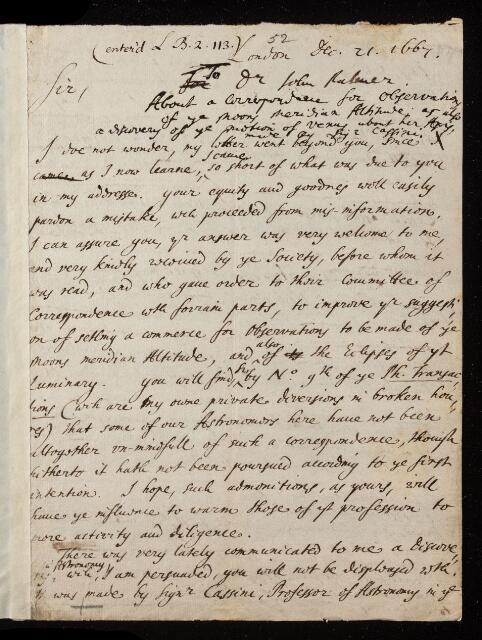 (enter'd L B. 2. 113.)
52
London Dec. 21. 1667.
To Dr John Palmer.
Sir,
About a correspondence for observations
of ye Moons meridian Altitude, as also
a discovery of ye motion of Venus about her Axis,
made by Sigr Cassini.
I doe not wonder, my letter went beyond you, since
it came as I now learne, so short of what was due to you
in my addresse. your equity and goodnes will easily
pardon a mistake, wch proceeded from mis-information.
I can assure you, yr answer was very welcome to me,
and very kindly received by ye Society, before whom it
was read, and who gave order to their Committee of
Correspondence wth forrain parts, to improve yr suggesti-
on of setling a commerce for observations to be made of ye
Moons meridian Altitude, and also of the Eclipses of yt
Luminary. you will find by No. 9th of ye Ph. Transac-
tions (wch are my owne private diversions in broken hou-
res) that some of our Astronomers here have not been
altogether un-mindfull of such a correspondence, though
hitherto it hath not been poursued according to ye first
intention. I hope, such admonitions, as yours, will
have ye influence to warm those of yt profession to
more activity and diligence.
There was very lately communicated to me a discove-
ry in Astronomy, wch, I am persuaded, you will not be displeased wth.
It was made by Signr Cassini, Professor of Astronomy in ye